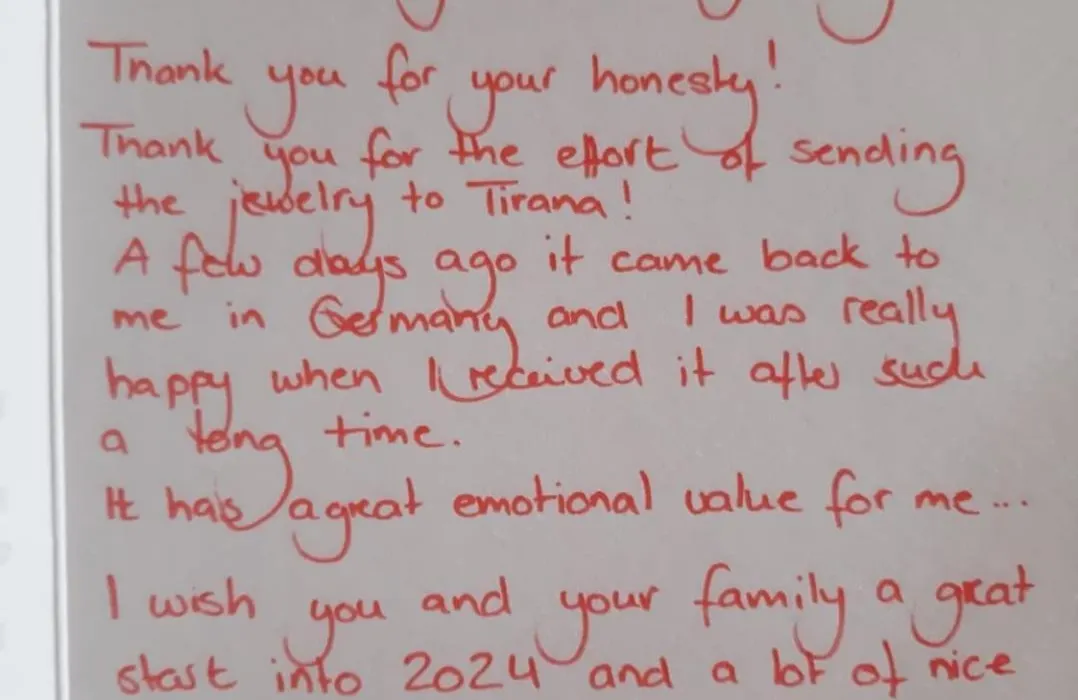 Thank you for your honesty!
Thank you for the effort of sending
the jewelry to Tirana!
A few days ago it came back to
me in Germany and I was really
happy when I received it after such
a long time.
It has a great emotional value for me...
I wish you and your family a great
start into 2024 and a lot of nice